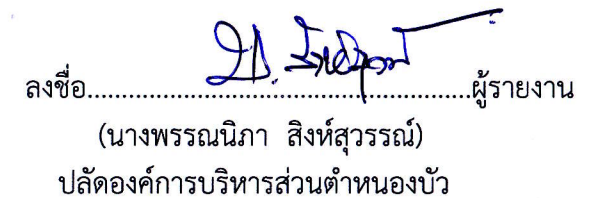 ลงชื่อ................................................ผู้รายงาน
(นางพรรณนิภา สิงห์สุวรรณ์)
ปลัดองค์การบริหารส่วนตำหนองบัว